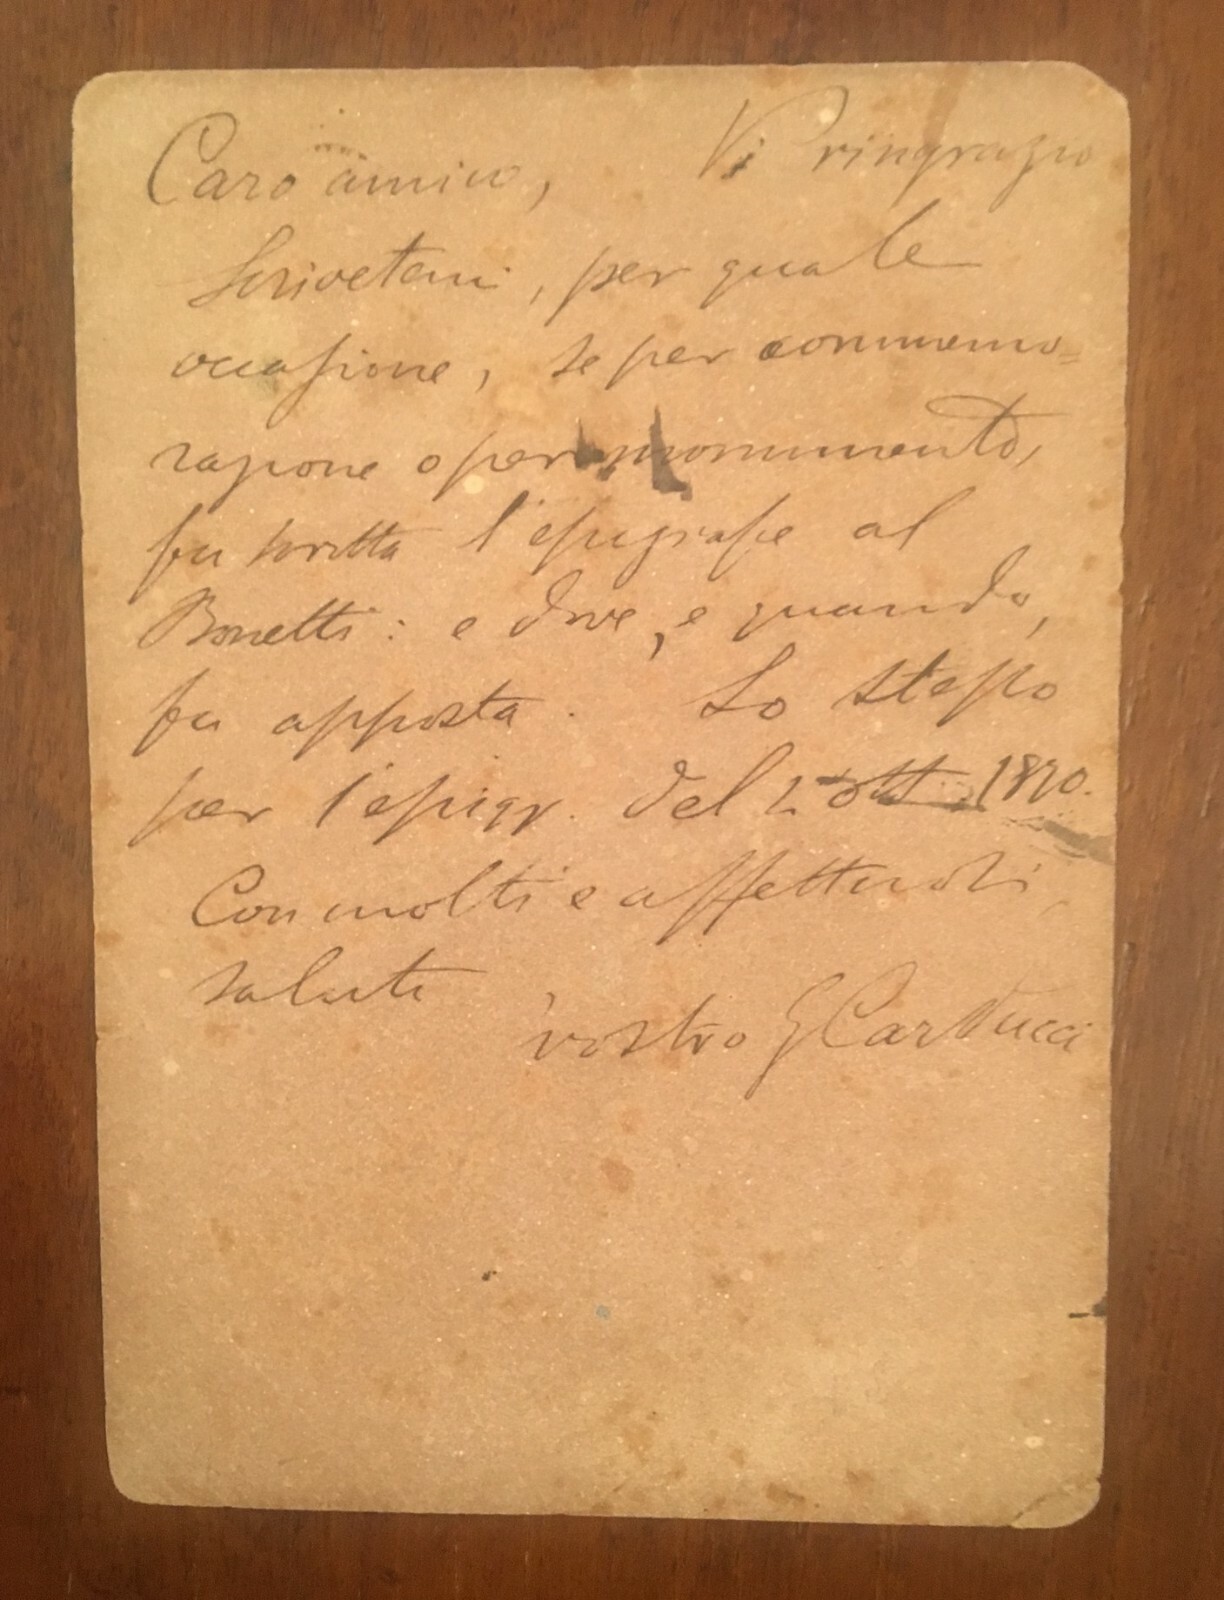 Caro amico, Vi ringrazio
Scrivetemi, per quale
occasione, se per commemo=
razione o per monumento,
fu scritta l'epigrafe al
Bonetti: e dove, e quando,
fu apposta. Lo stesso
per l'epigr. del 2 ott. 1870.
Con molti e affettuosi
saluti
vostro GCarducci